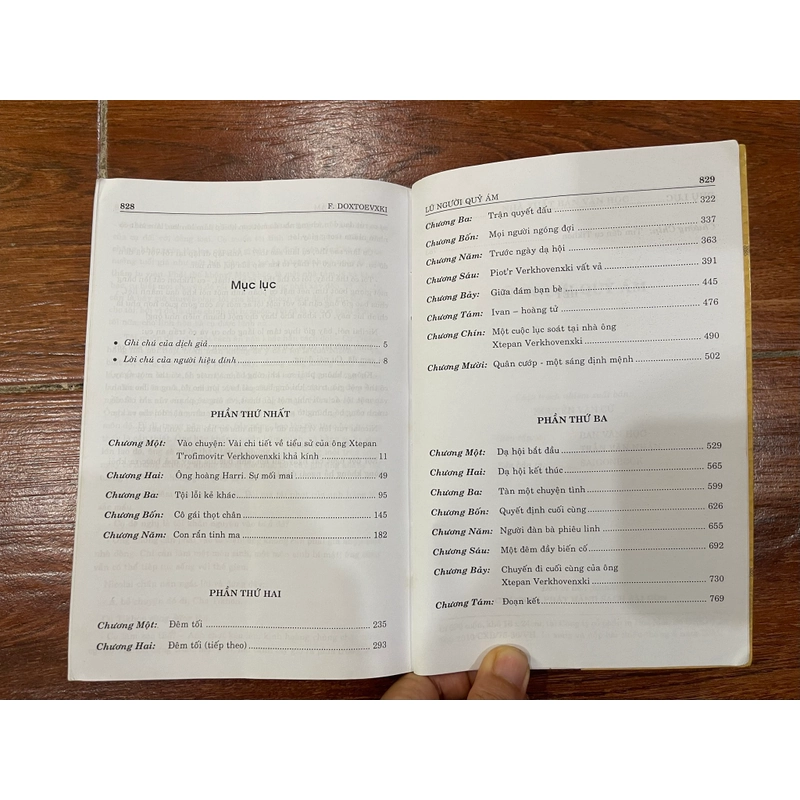 828
F. DOXTOEVXKI
Mục lục
• Ghi chú của dịch giả 5
• Lời chú của người hiệu đính 8
PHẦN THỨ NHẤT
Chương Một: Vào chuyện: Vài chi tiết về tiểu sử của ông Xtepan
T'rofimovitr Verkhovenxki khả kính 11
Chương Hai: Ông hoàng Harri. Sự mối mai 49
Chương Ba: Tội lỗi kẻ khác 95
Chương Bốn: Cô gái thọt chân 145
Chương Năm: Con rắn tinh ma 182
PHẦN THỨ HAI
Chương Một: Đêm tối 235
Chương Hai: Đêm tối (tiếp theo) 293
LŨ NGƯỜI QUỶ ÁM
829
Chương Ba: Trận quyết đấu 322
Chương Bốn: Mọi người ngóng đợi 337
Chương Năm: Trước ngày dạ hội 363
Chương Sáu: Piot'r Verkhovenxki vất vả 391
Chương Bảy: Giữa đám bạn bè 445
Chương Tám: Ivan – hoàng tử 476
Chương Chín: Một cuộc lục soát tại nhà ông
Xtepan Verkhovenxki 490
Chương Mười: Quân cướp - một sáng định mệnh 502
PHẦN THỨ BA
Chương Một: Dạ hội bắt đầu 529
Chương Hai: Dạ hội kết thúc 565
Chương Ba: Tàn một chuyện tình 599
Chương Bốn: Quyết định cuối cùng 626
Chương Năm: Người đàn bà phiêu linh 655
Chương Sáu: Một đêm đầy biến cố 692
Chương Bảy: Chuyến đi cuối cùng của ông
Xtepan Verkhovenxki 730
Chương Tám: Đoạn kết 769